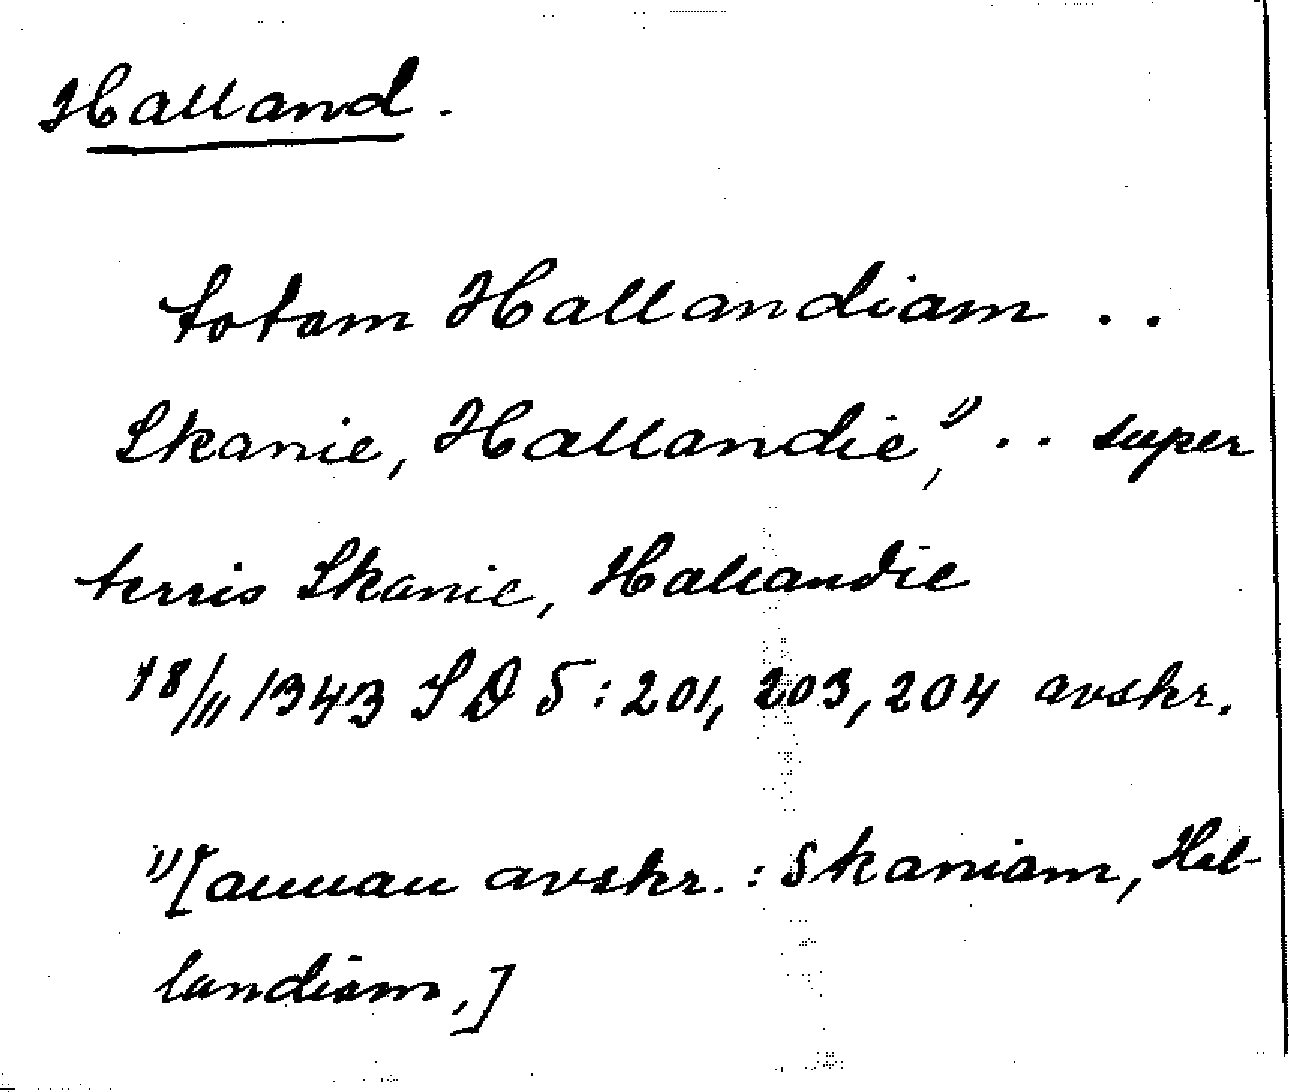 Halland.
totam Hallandiam ..
Skanie, Hallandie,¹⁾ .. super
terris Skanie, Hallandie
18/11 1343 SD 5:201, 203, 204 avskr.
¹⁾[annan avskr.: Skaniam, Hal-
landiam,]